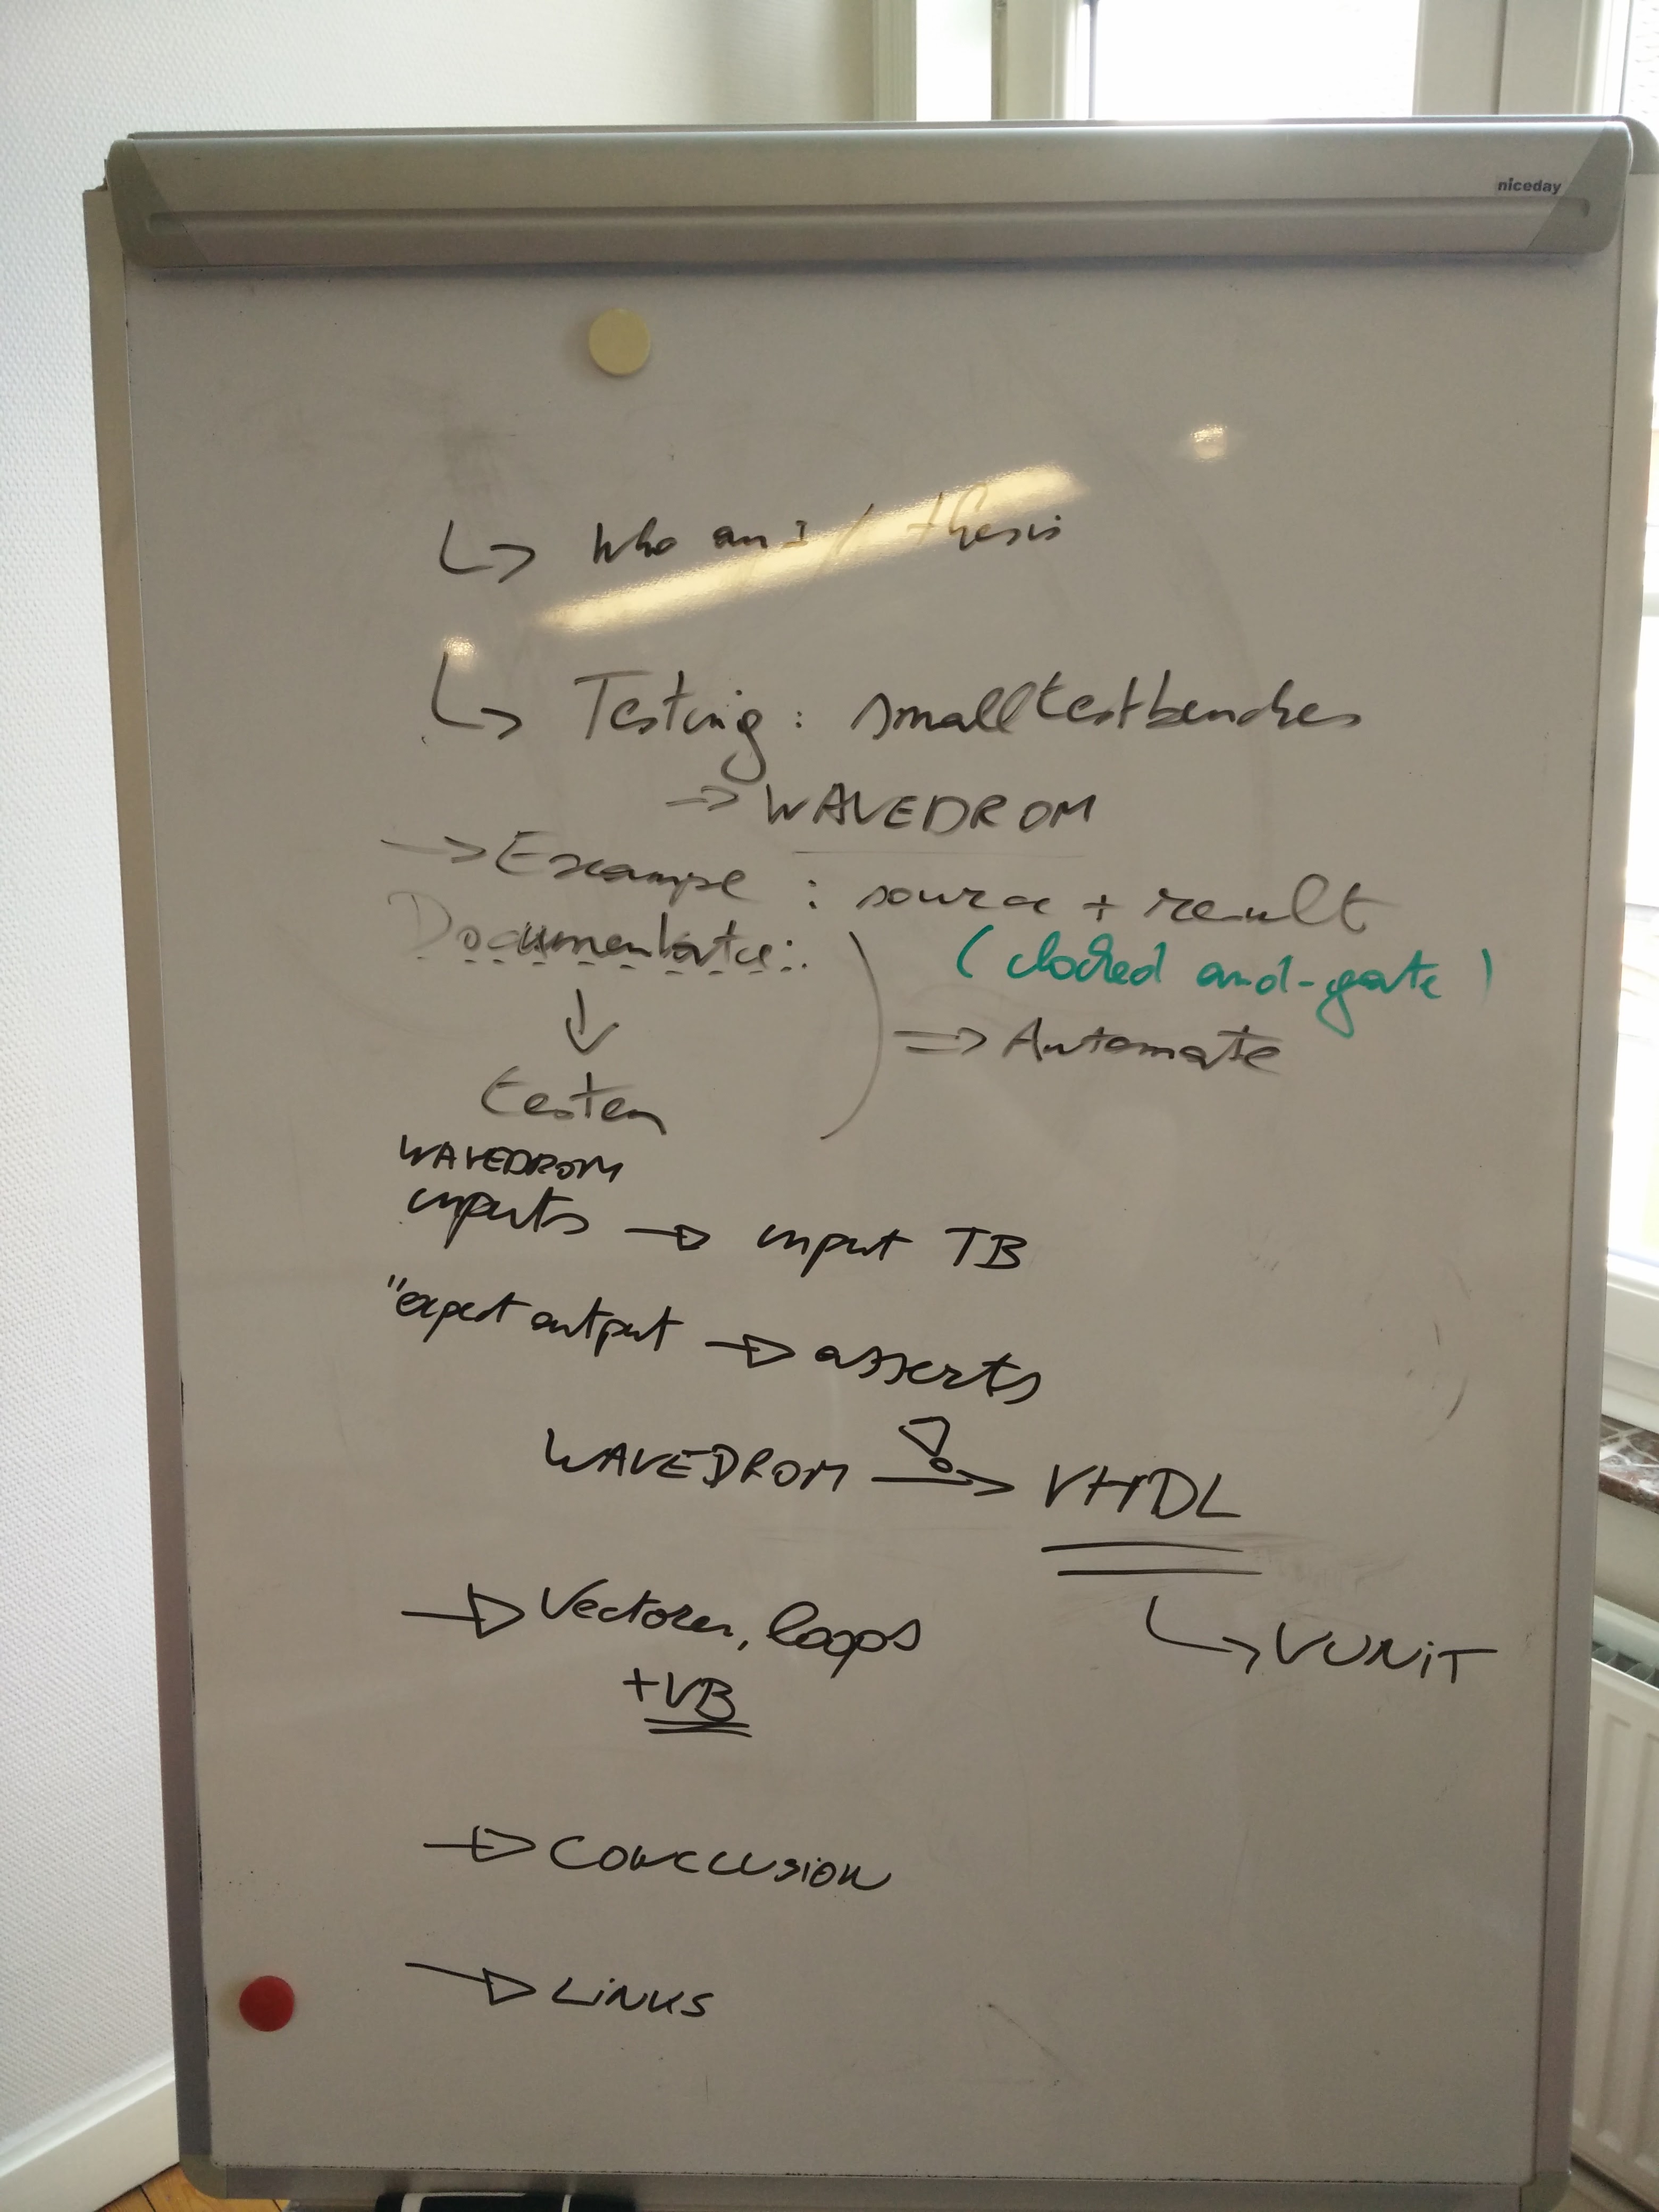 niceday
↳ Who am I / thesis
↳ Testing : small testbenches
→ WAVEDROM
→ Example : source + result
(clocked and-gate)
Documentatie:
↓
testen
⇒ Automate
WAVEDROM
inputs → input TB
"expect output → asserts
WAVEDROM → VHDL
↳ VUNiT
→ Vectoren, loops
+VB
→ CONCLUSION
→ LiNKS